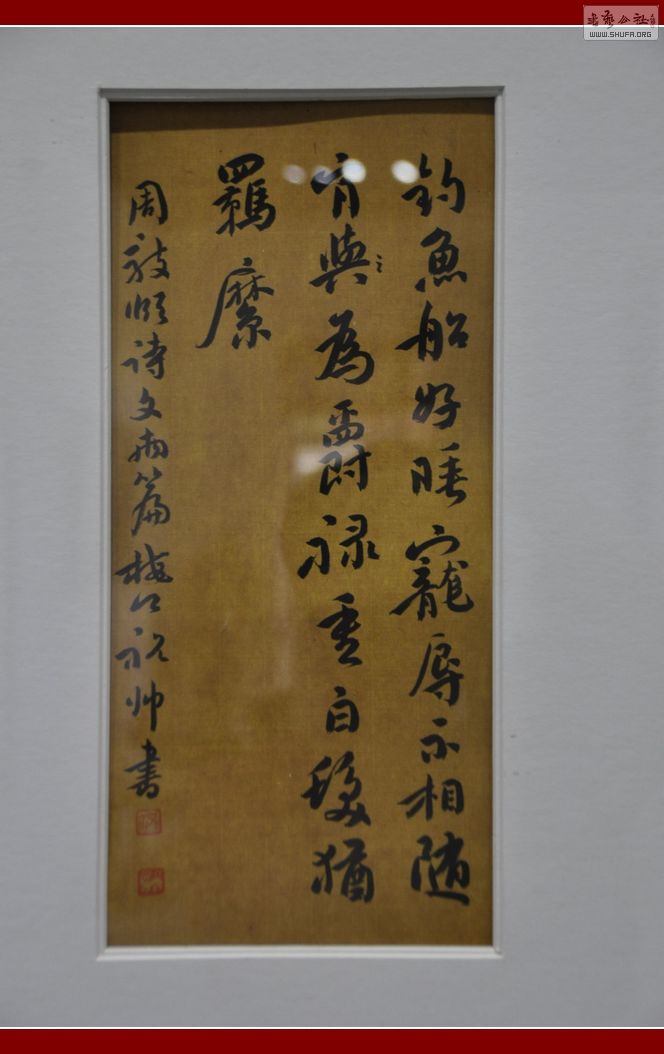 釣魚船好睡寵辱不相随
肯與為爵禄重白髮猶
羈縻
周敦頤詩文兩篇梅江祝帅書
書藝公社
WWW.SHUFA.ORG